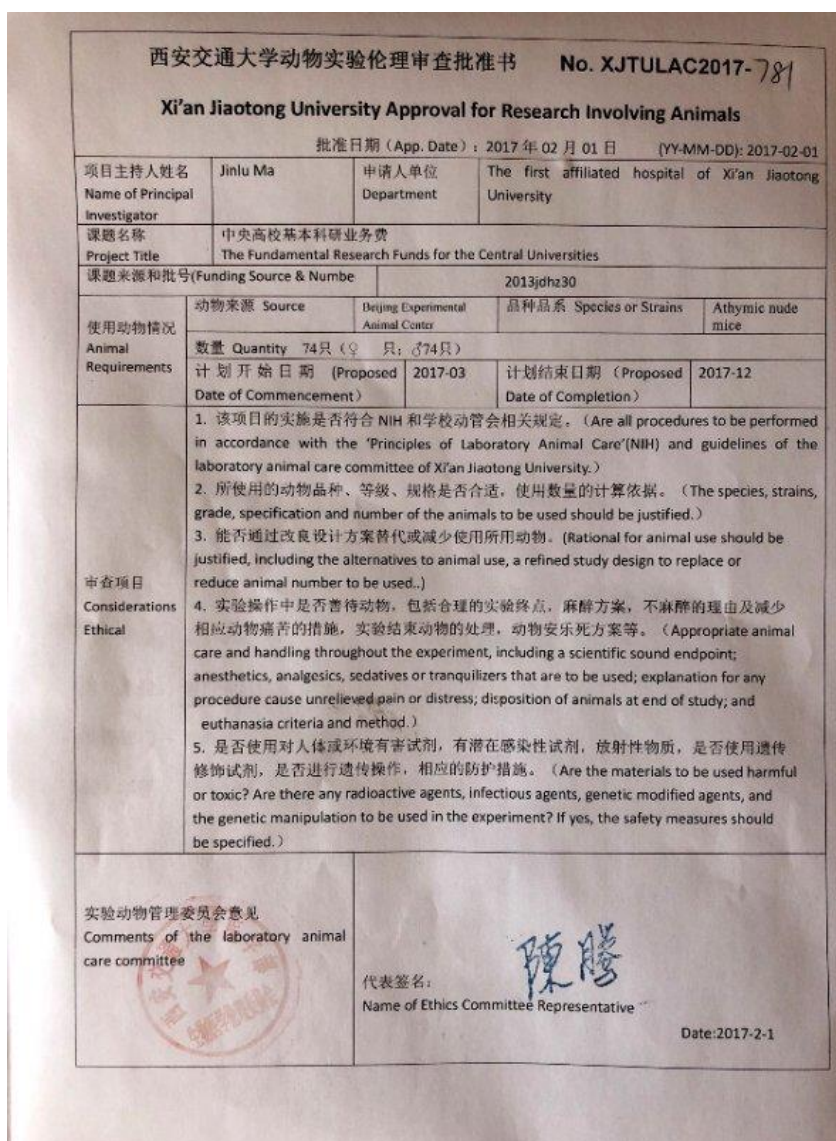 西安交通大学动物实验伦理审查批准书 No. XJTULAC2017-781
Xi'an Jiaotong University Approval for Research Involving Animals
批准日期（App. Date）：2017 年 02 月 01 日 (YY-MM-DD): 2017-02-01
项目主持人姓名
Name of Principal
Investigator
Jinlu Ma
申请人单位
Department
The first affiliated hospital of Xi'an Jiaotong
University
课题名称
Project Title
中央高校基本科研业务费
The Fundamental Research Funds for the Central Universities
课题来源和批号(Funding Source & Numbe
2013jdhz30
使用动物情况
Animal
Requirements
动物来源 Source
Beijing Experimental
Animal Center
品种品系 Species or Strains
Athymic nude
mice
数量 Quantity 74只（♀ 只；♂74只）
计划开始日期 (Proposed
Date of Commencement）
2017-03
计划结束日期（Proposed
Date of Completion）
2017-12
审查项目
Considerations
Ethical
1. 该项目的实施是否符合 NIH 和学校动管会相关规定。（Are all procedures to be performed
in accordance with the 'Principles of Laboratory Animal Care'(NIH) and guidelines of the
laboratory animal care committee of Xi'an Jiaotong University.）
2. 所使用的动物品种、等级、规格是否合适，使用数量的计算依据。（The species, strains,
grade, specification and number of the animals to be used should be justified.）
3. 能否通过改良设计方案替代或减少使用所用动物。(Rational for animal use should be
justified, including the alternatives to animal use, a refined study design to replace or
reduce animal number to be used..)
4. 实验操作中是否善待动物，包括合理的实验终点，麻醉方案，不麻醉的理由及减少
相应动物痛苦的措施，实验结束动物的处理，动物安乐死方案等。（Appropriate animal
care and handling throughout the experiment, including a scientific sound endpoint;
anesthetics, analgesics, sedatives or tranquilizers that are to be used; explanation for any
procedure cause unrelieved pain or distress; disposition of animals at end of study; and
euthanasia criteria and method.）
5. 是否使用对人体或环境有害试剂，有潜在感染性试剂，放射性物质，是否使用遗传
修饰试剂，是否进行遗传操作，相应的防护措施。（Are the materials to be used harmful
or toxic? Are there any radioactive agents, infectious agents, genetic modified agents, and
the genetic manipulation to be used in the experiment? If yes, the safety measures should
be specified.）
实验动物管理委员会意见
Comments of the laboratory animal
care committee
陳腾
代表签名：
Name of Ethics Committee Representative
Date:2017-2-1